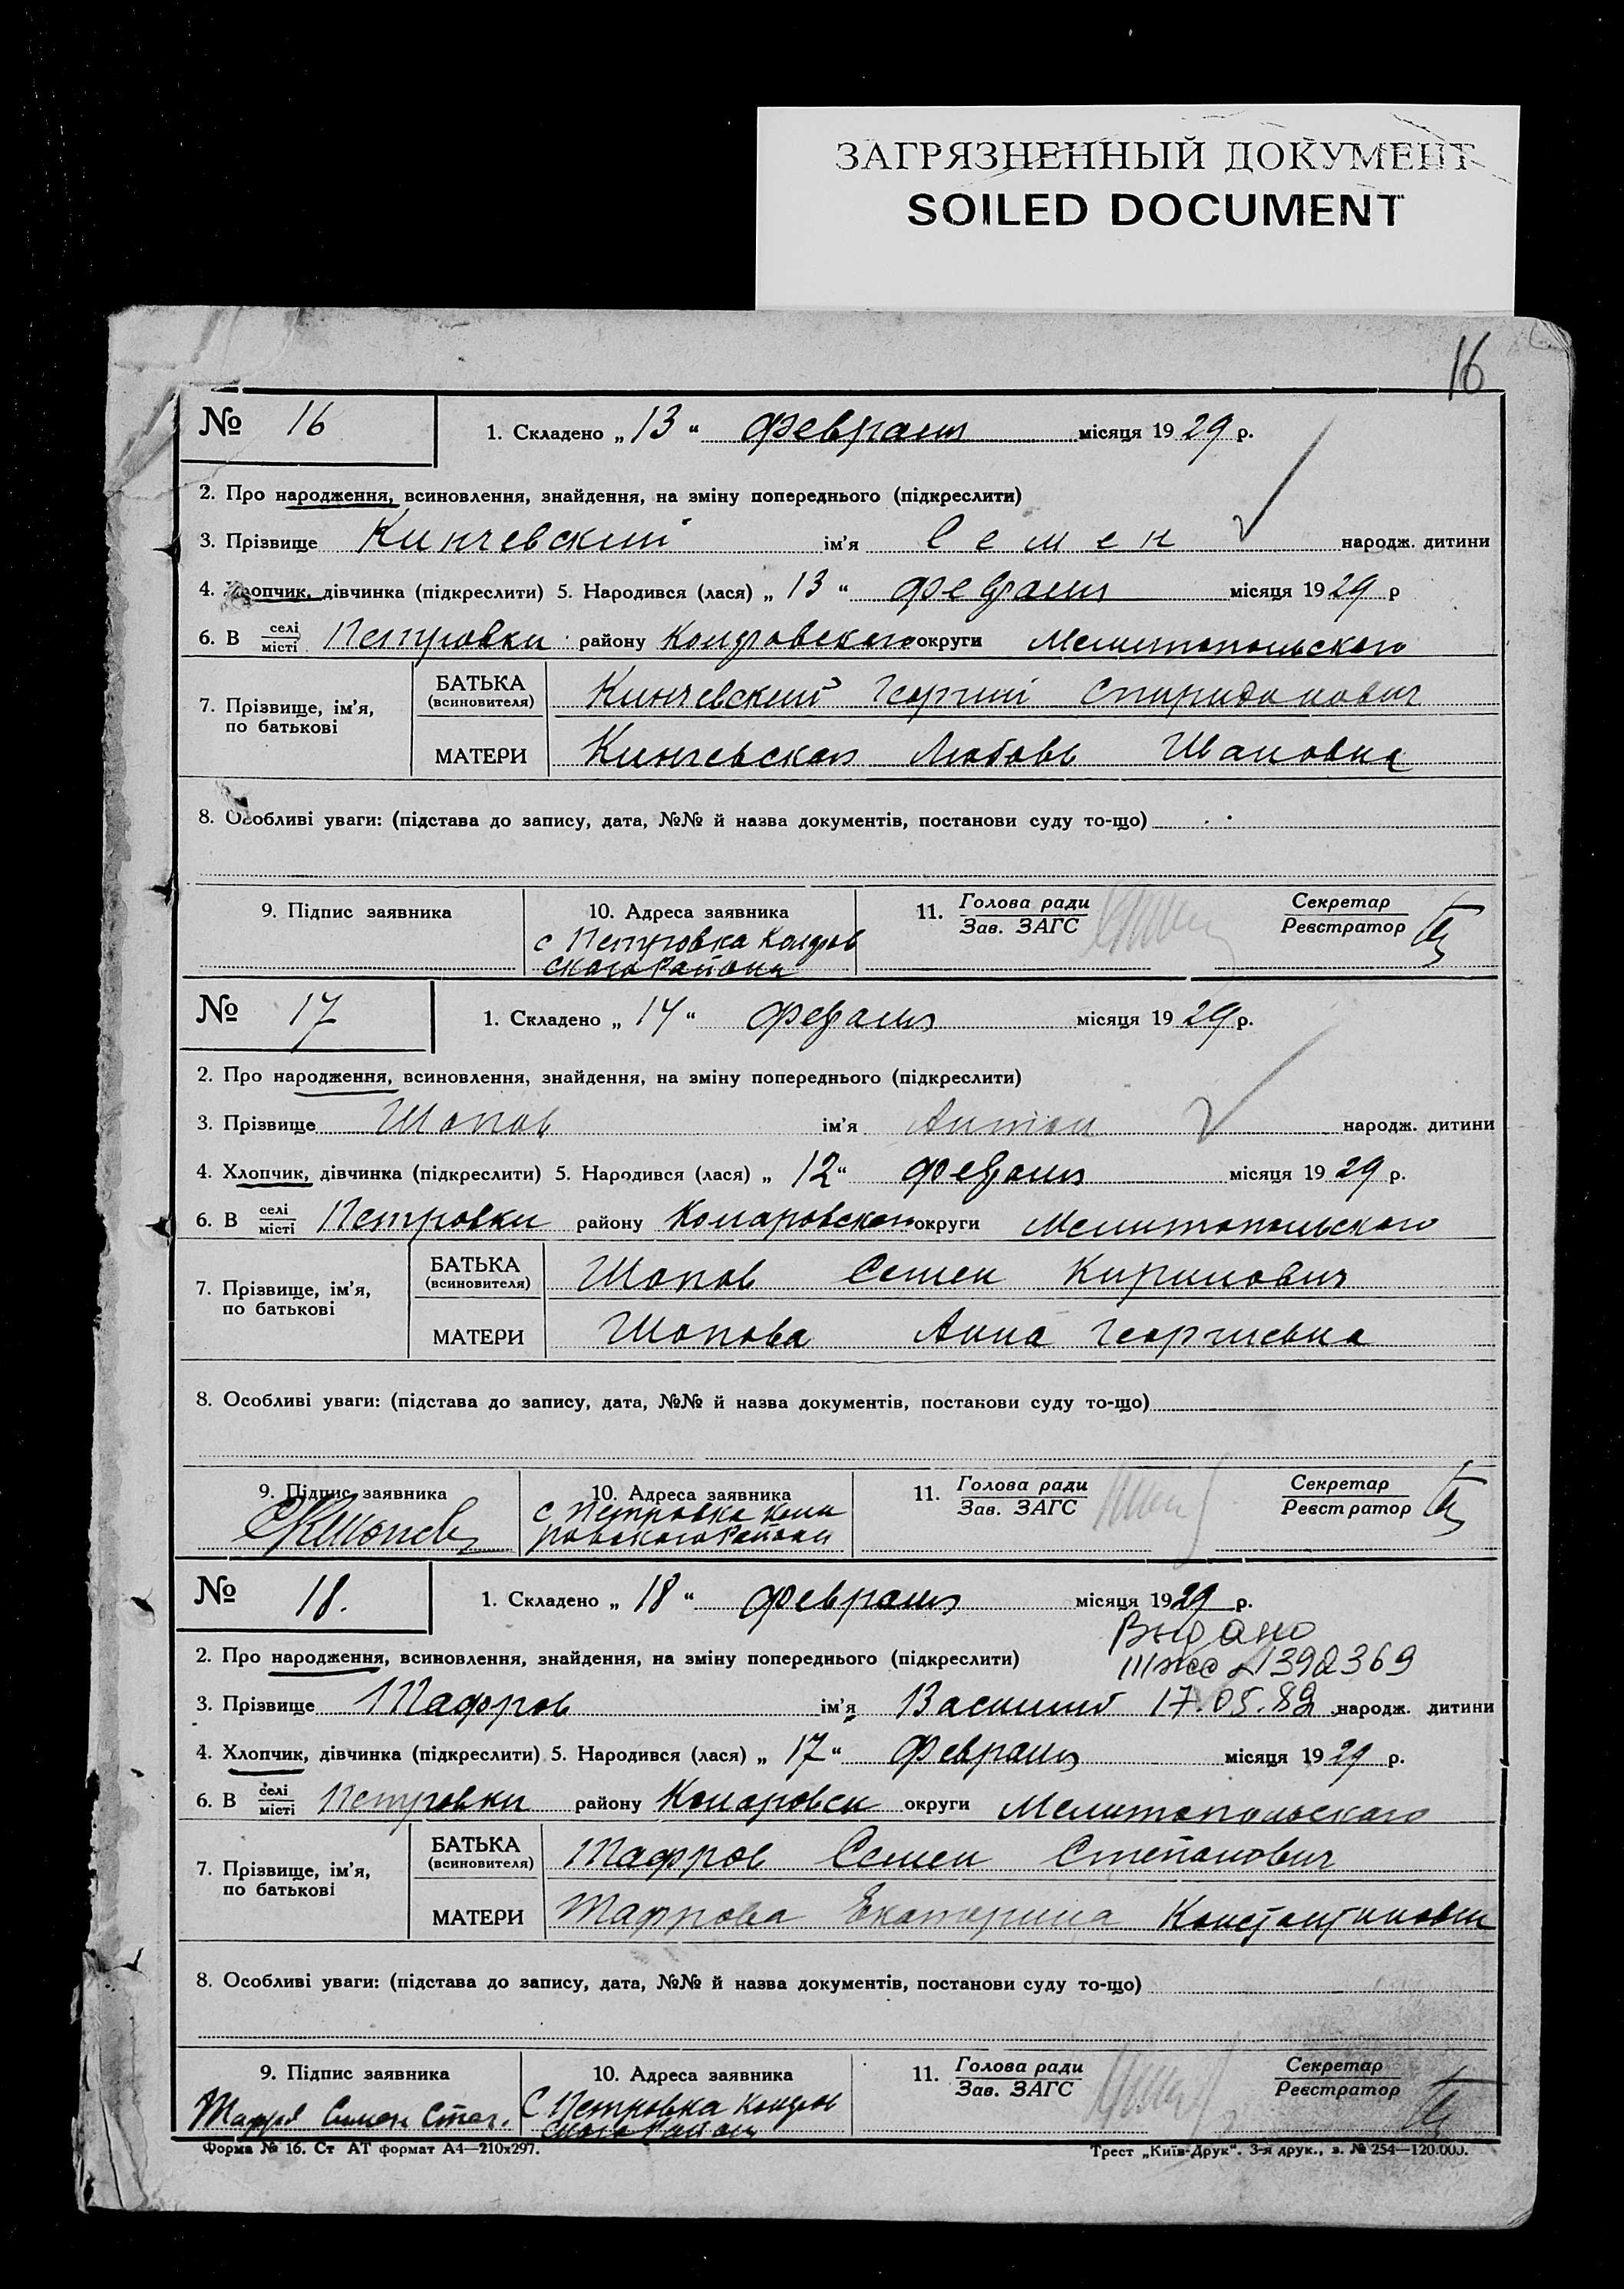 ЗАГРЯЗНЕННЫЙ ДОКУМЕНТ
SOILED DOCUMENT
16
№ 16 1. Складено „ 13 “ февраля місяця 19 29 р.
2. Про народження, всиновлення, знайдення, на зміну попереднього (підкреслити)
3. Прізвище Кинчевский ім’я Семен народж. дитини
4. Хлопчик, дівчинка (підкреслити) 5. Народився (лася) „ 13 “ февраля місяця 19 29 р
6. В селі місті Петровки району округи Мелитопольского
7. Прізвище, ім’я, по батькові
БАТЬКА (всиновителя) Кинчевский Георгий Спиридонович
МАТЕРИ Кинчевская Любовь Ивановна
8. Особливі уваги: (підстава до запису, дата, №№ й назва документів, постанови суду то-що)
9. Підпис заявника 10. Адреса заявника 11. Голова ради Зав. ЗАГС Секретар Реєстратор
с Петровка
ского Района
№ 17 1. Складено „ 14 “ февраля місяця 19 29 р.
2. Про народження, всиновлення, знайдення, на зміну попереднього (підкреслити)
3. Прізвище Шопов ім’я Антон народж. дитини
4. Хлопчик, дівчинка (підкреслити) 5. Народився (лася) „ 12 “ февраля місяця 19 29 р.
6. В селі місті Петровки району Коларовского округи Мелитопольского
7. Прізвище, ім’я, по батькові
БАТЬКА (всиновителя) Шопов Семен Кирилович
МАТЕРИ Шопова Анна Георгиевна
8. Особливі уваги: (підстава до запису, дата, №№ й назва документів, постанови суду то-що)
9. Підпис заявника 10. Адреса заявника 11. Голова ради Зав. ЗАГС Секретар Реєстратор
с Петровка Кола
СКШопов ровского Района
№ 18. 1. Складено „ 18 “ февраля місяця 19 29 р.
Выдано
2. Про народження, всиновлення, знайдення, на зміну попереднього (підкреслити) 1392369
3. Прізвище Тафров ім’я Василий 17.05.82 народж. дитини
4. Хлопчик, дівчинка (підкреслити) 5. Народився (лася) „ 17 “ февраля місяця 19 29 р.
6. В селі місті Петровки району Коларовск округи Мелитопольского
7. Прізвище, ім’я, по батькові
БАТЬКА (всиновителя) Тафров Семен Степанович
МАТЕРИ Тафрова Екатерина Константиновн
8. Особливі уваги: (підстава до запису, дата, №№ й назва документів, постанови суду то-що)
9. Підпис заявника 10. Адреса заявника 11. Голова ради Зав. ЗАГС Секретар Реєстратор
С. Петровка
ского Района
Форма № 16. Ст АТ формат А4—210х297. Трест „Київ-Друк“. 3-я друк., з. № 254—120.000.